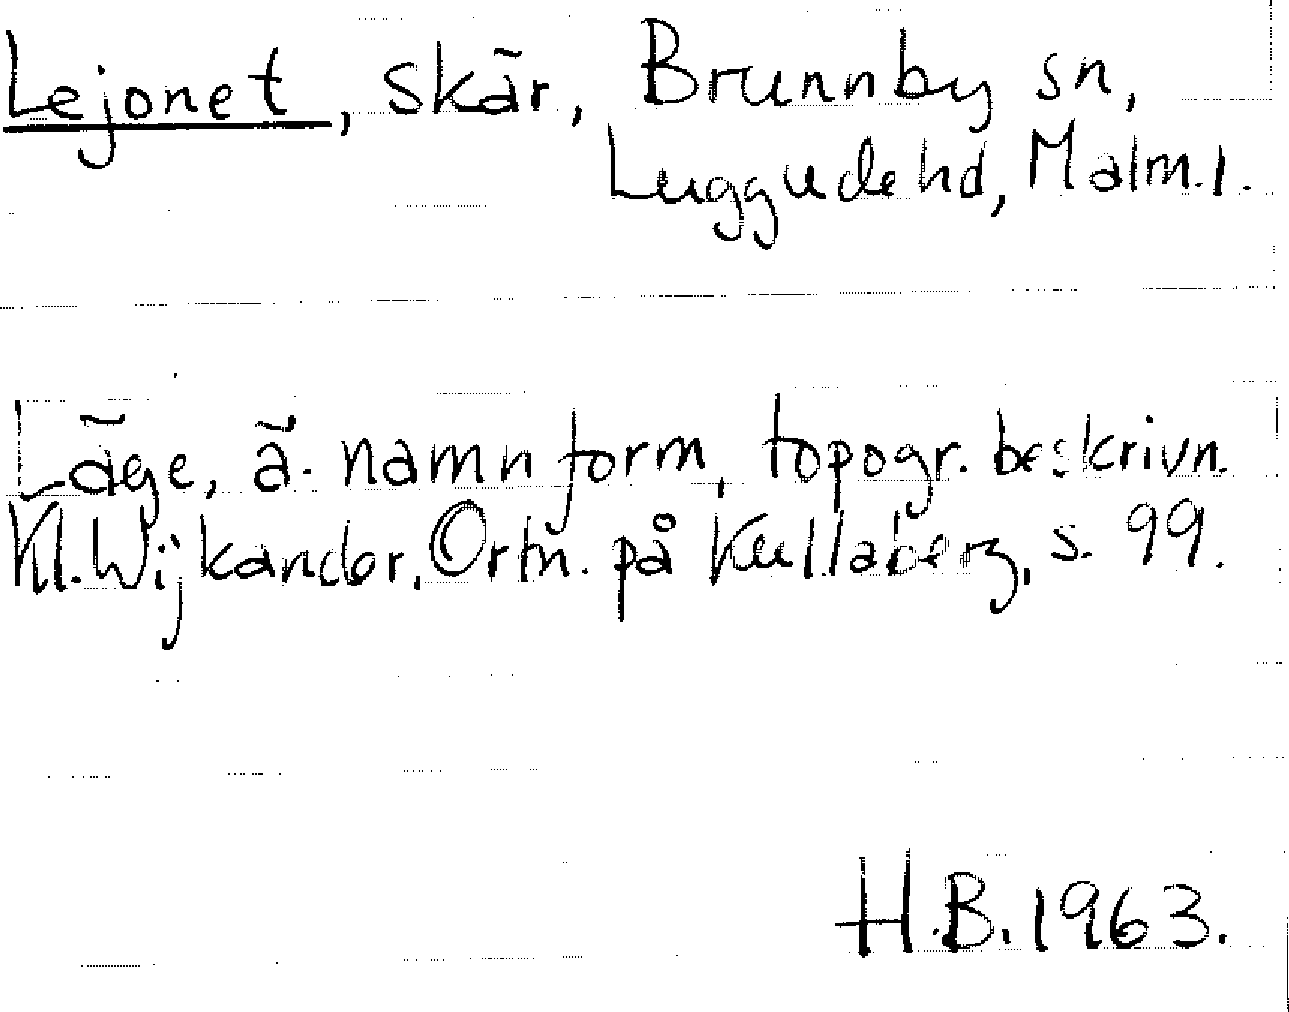 Lejonet, skär, Brunnby sn,
Luggude hd, Malm.l.
Läge, ä. namnform, topogr. beskrivn.
Kl. Wijkander, Ortn. på Kullaberg, s. 99.
H.B. 1963.